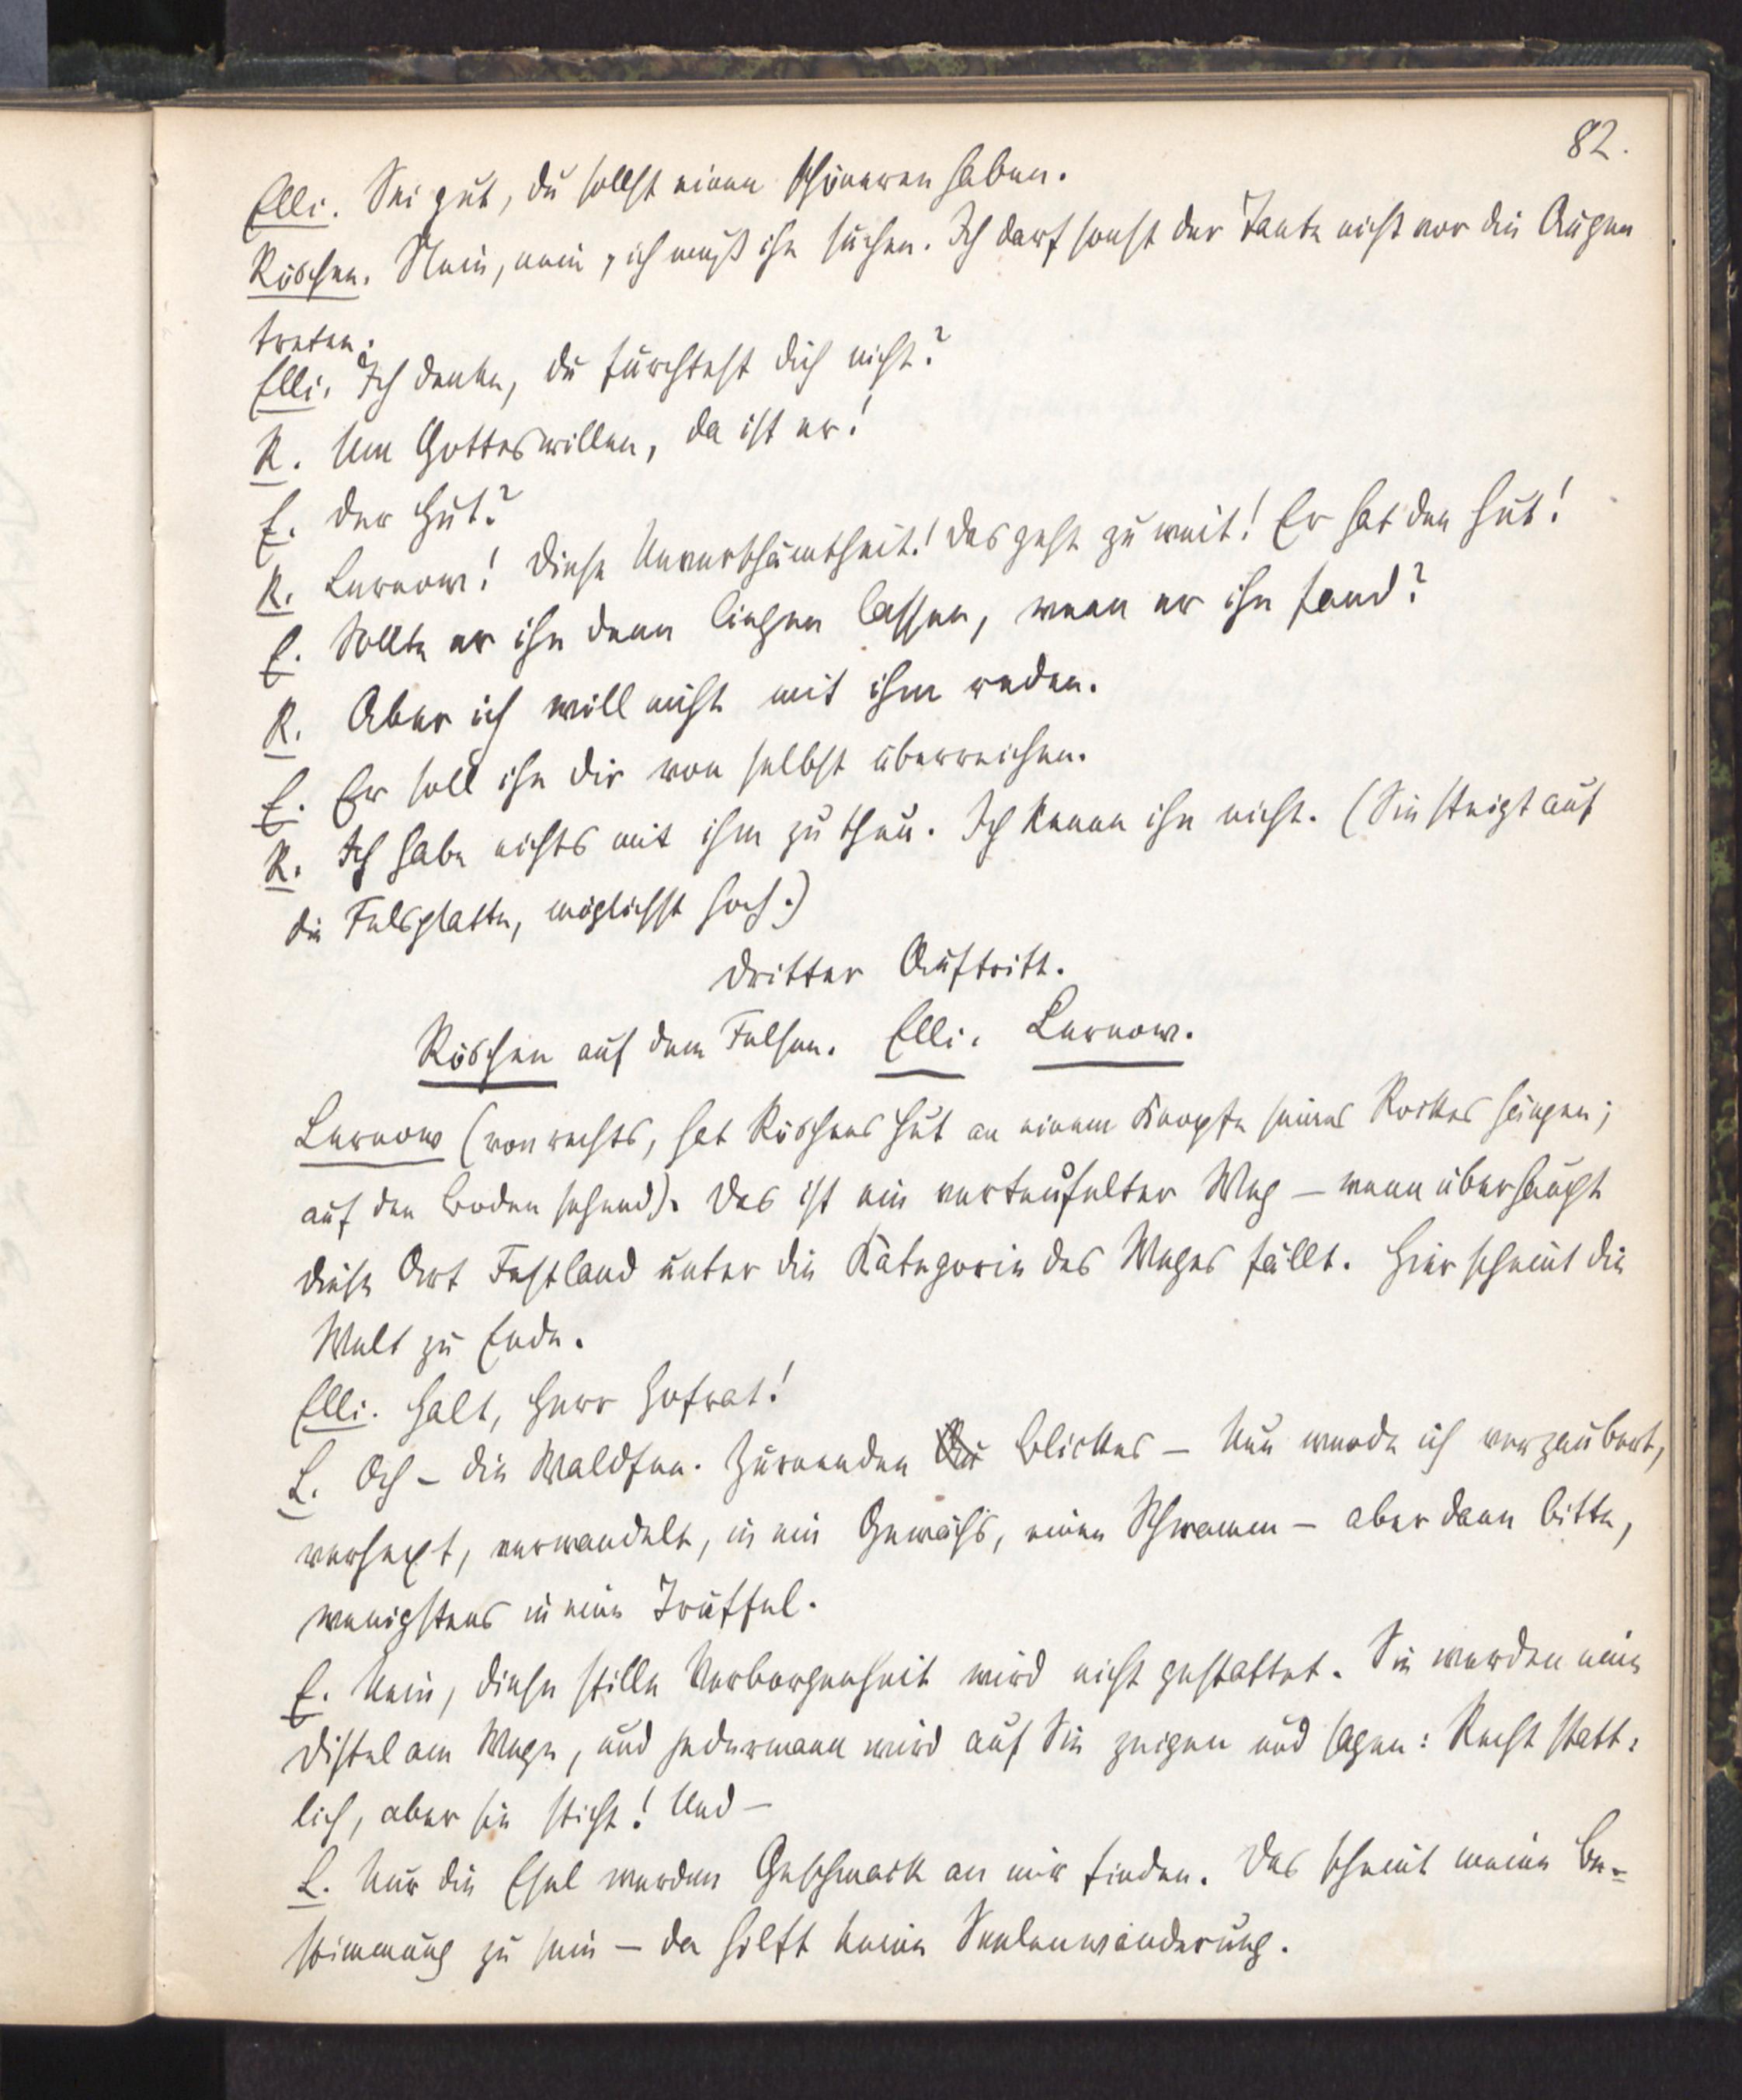 82.
Elli. Sei gut, du sollst einen schöneren haben.
Röschen. Nein, nein, ich muß ihn suchen. Ich darf sonst der Tante nicht vor die Augen
treten.
Elli. Ich denke, du fürchtest dich nicht?
R. Um Gotteswillen, da ist er!
E. Der Hut?
R. Lernow! Diese Unverschämtheit! Das geht zu weit! Er hat den Hut!
E. Sollte er ihn denn liegen lassen, wenn er ihn fand?
R. Aber ich will nicht mit ihm reden.
E. Er soll ihn dir von selbst überreichen.
R. Ich habe nichts mit ihm zu thun. Ich kenne ihn nicht. (Sie steigt auf
die Felsplatte, möglichst hoch.)
Dritter Auftritt.
Röschen auf dem Felsen. Elli. Lernow.
Lernow (von rechts, hat Röschens Hut an einem Knopfe seines Rockes hängen;
auf den Boden sehend). Das ist ein verteufelter Weg – wenn überhaupt
diese Art Festland unter die Kategorie des Weges fällt. Hier scheint die
Welt zu Ende.
Elli. Halt, Herr Hofrat!
L. Ach – die Waldfee. Zürnenden Blickes – Nun werde ich verzaubert,
verhext, verwandelt, in ein Gewächs, einen Schwamm – aber dann bitte,
wenigstens in eine Trüffel.
E. Nein, diese stille Verborgenheit wird nicht gestattet. Sie werden eine
Distel am Wege, und jedermann wird auf Sie zeigen und sagen: Recht statt=
lich, aber sie sticht! Und –
L. Nur die Esel werden Geschmack an mir finden. Das scheint meine Be=
stimmung zu sein – da hilft keine Seelenwanderung.